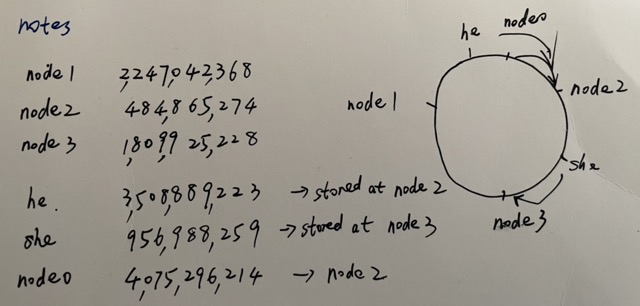 notes
node1 2,247,042,368
node2 484,865,274
node3 1,809,925,228
he. 3,508,889,223 → stored at node2
she 956,988,259 → stored at node3
node0 4,075,296,214 → node2
he node0
node2
node1
she
node3